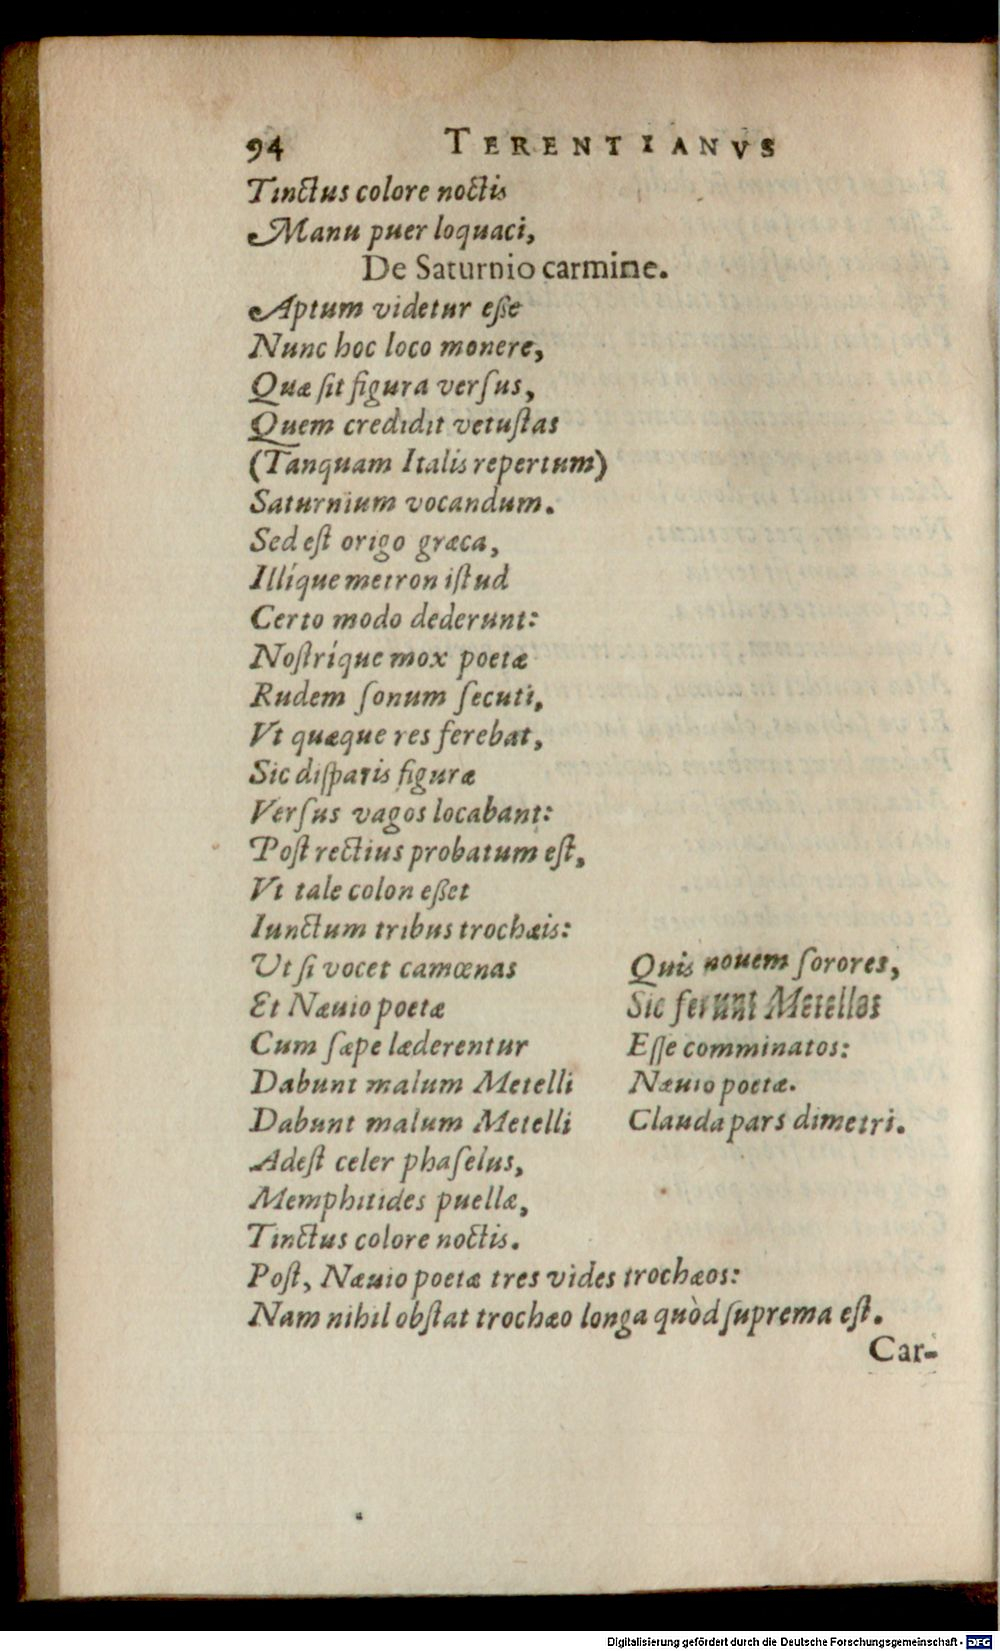 94 TERENTIANVS
Tinctus colore noctis
Manu puer loquaci,
De Saturnio carmine.
Aptum videtur eſſe
Nunc hoc loco monere,
Quæ ſit figura verſus,
Quem credidit vetuſtas
(Tanquam Italis repertum)
Saturnium vocandum.
Sed eſt origo græca,
Illíque metron iſtud
Certo modo dederunt:
Noſtríque mox poetæ
Rudem ſonum ſecuti,
Vt quæque res ferebat,
Sic diſparis figuræ
Verſus vagos locabant:
Poſt rectius probatum eſt,
Vt tale colon eßet
Iunctum tribus trochæis:
Ut ſi vocet camœnas Quis nouem ſorores,
Et Næuio poetæ Sic ferunt Metellos
Cum ſæpe læderentur Eſſe comminatos:
Dabunt malum Metelli Næuio poetæ.
Dabunt malum Metelli Clauda pars dimetri.
Adeſt celer phaſelus,
Memphitides puellæ,
Tinctus colore noctis.
Poſt, Næuio poetæ tres vides trochæos:
Nam nihil obſtat trochæo longa quòd ſuprema eſt.
Car-
Digitalisierung gefördert durch die Deutsche Forschungsgemeinschaft - DFG